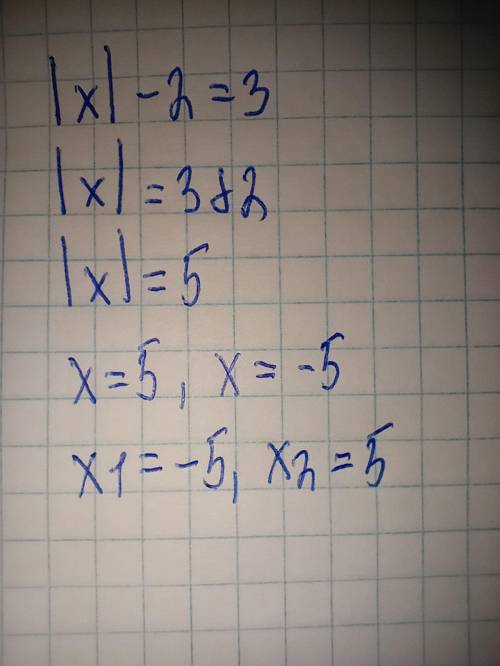 |x| - 2 = 3
|x| = 3 + 2
|x| = 5
x = 5, x = -5
x1 = -5, x2 = 5